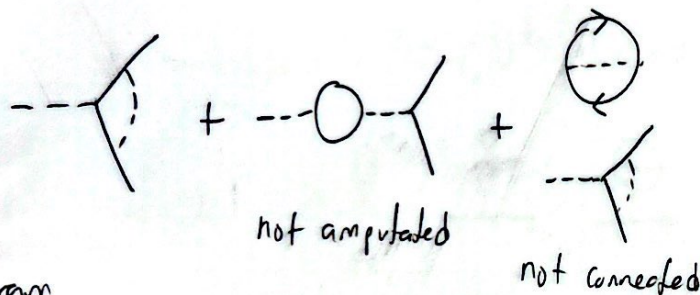 +
+
not amputated
not connected